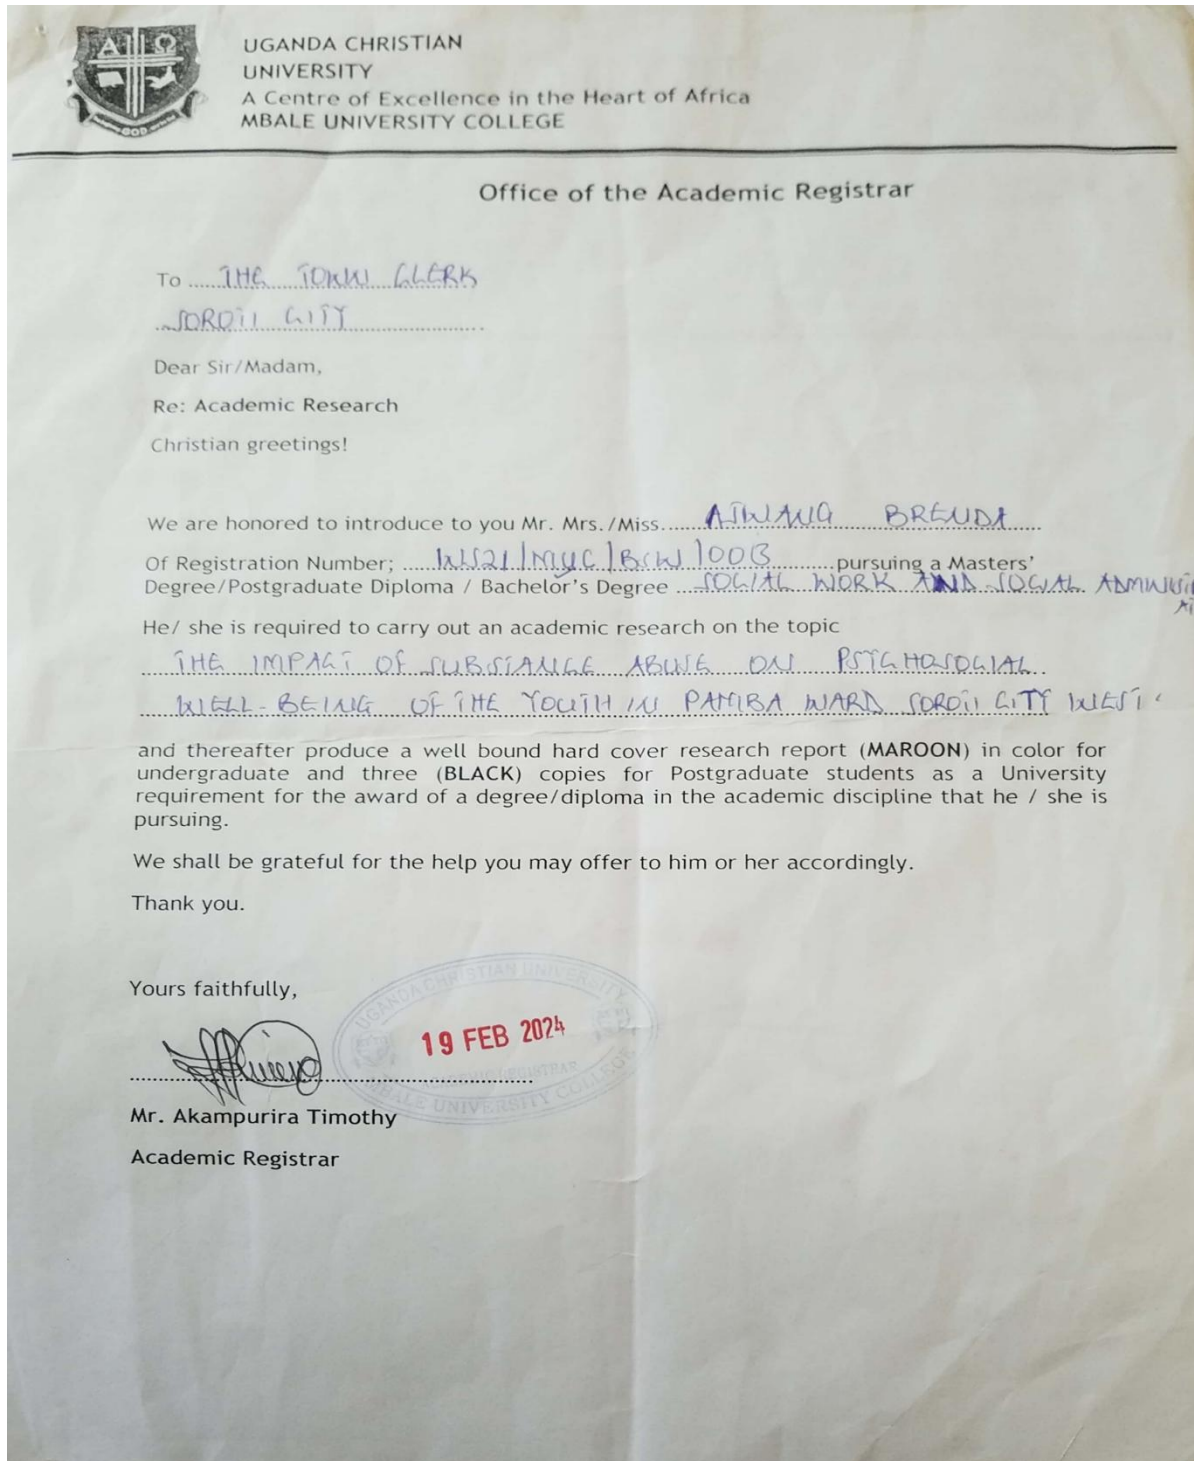 A Ω
GOD
UGANDA CHRISTIAN
UNIVERSITY
A Centre of Excellence in the Heart of Africa
MBALE UNIVERSITY COLLEGE
Office of the Academic Registrar
To ......THE TOWN CLERK
SOROTI CITY
Dear Sir/Madam,
Re: Academic Research
Christian greetings!
We are honored to introduce to you Mr. Mrs./Miss..... BRENDA
Of Registration Number; ............ pursuing a Masters'
Degree/Postgraduate Diploma / Bachelor's Degree ...SOCIAL WORK AND SOCIAL
He/ she is required to carry out an academic research on the topic
THE IMPACT OF SUBSTANCE ABUSE ON PSYCHOSOCIAL
WELL-BEING OF THE YOUTH IN PAMBA WARD SOROTI CITY WEST
and thereafter produce a well bound hard cover research report (MAROON) in color for
undergraduate and three (BLACK) copies for Postgraduate students as a University
requirement for the award of a degree/diploma in the academic discipline that he / she is
pursuing.
We shall be grateful for the help you may offer to him or her accordingly.
Thank you.
Yours faithfully,
UGANDA CHRISTIAN UNIVERSITY
19 FEB 2024
ACADEMIC REGISTRAR
MBALE UNIVERSITY COLLEGE
Mr. Akampurira Timothy
Academic Registrar